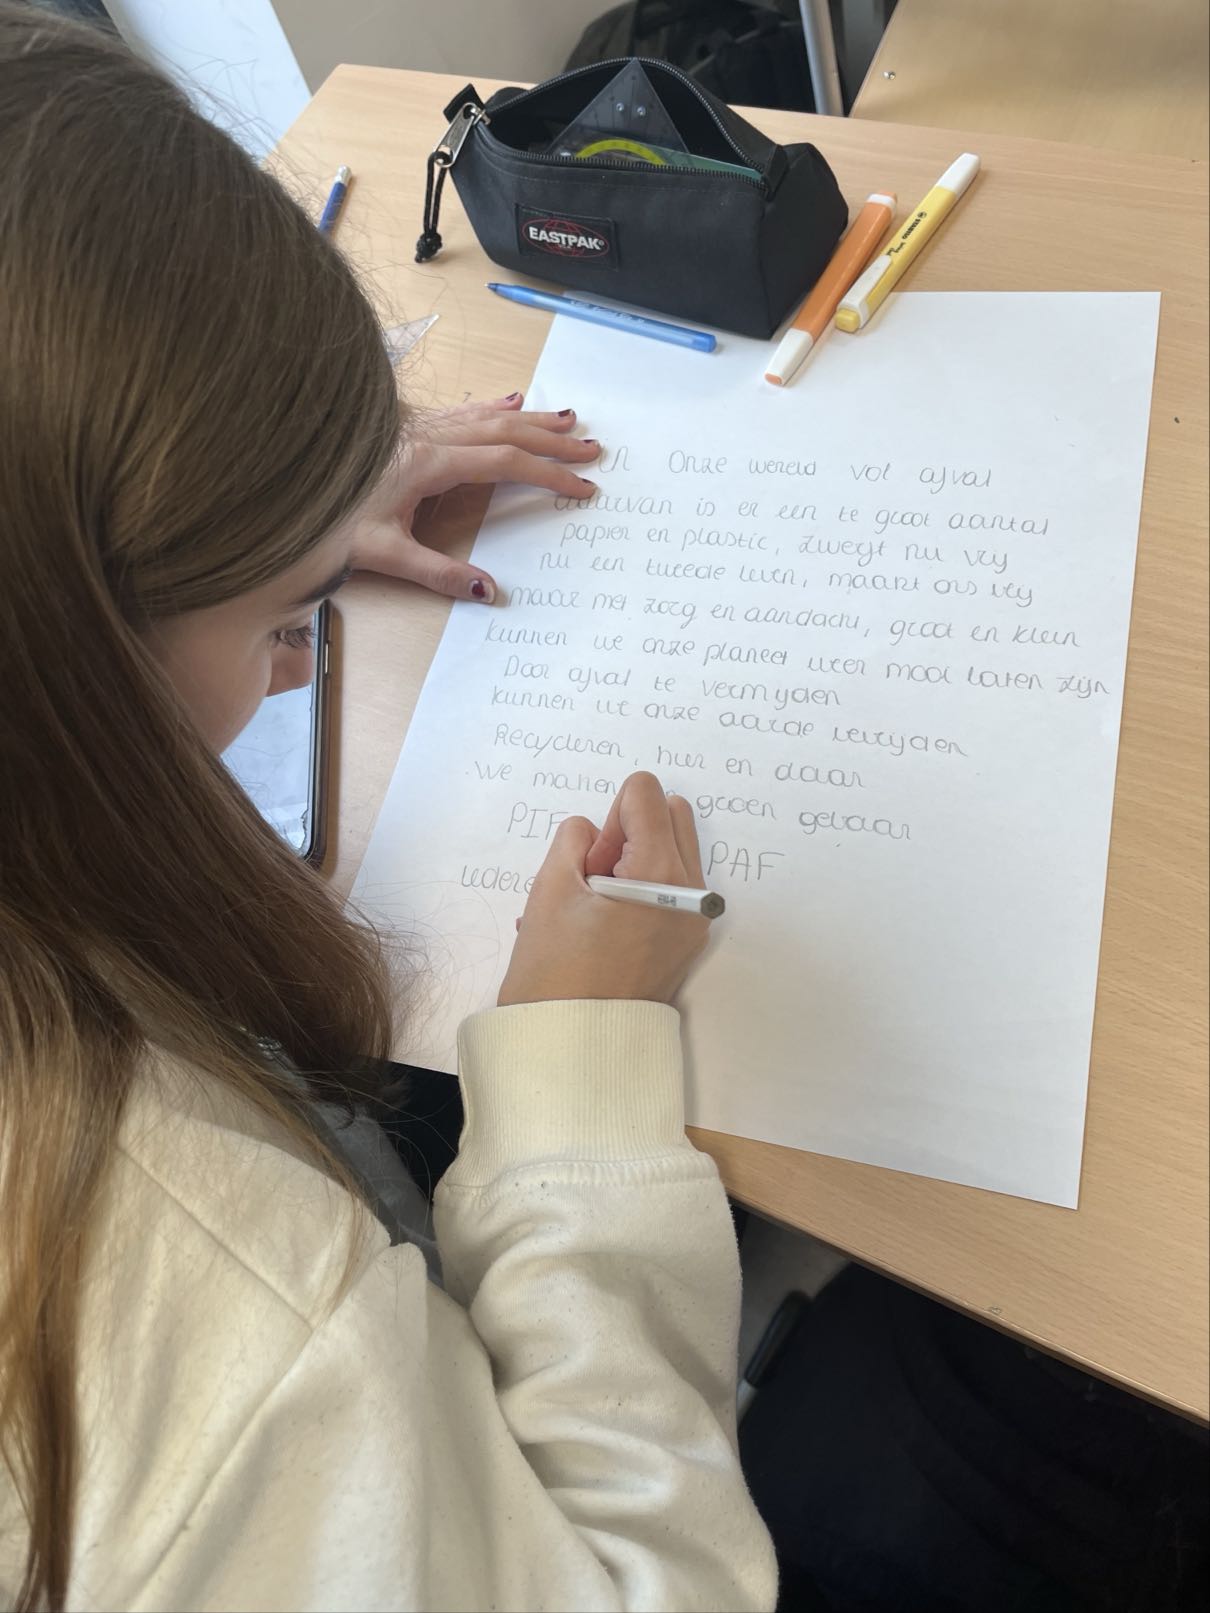 EASTPAK
STABILO
in Onze wereld vol afval
daarvan is er een te groot aantal
papier en plastic, zwerft nu vrij
nu een tweede leven, maakt ons vrij
maar met zorg en aandacht, groot en klein
kunnen we onze planeet weer mooi laten zijn
Door afval te vermijden
kunnen we onze aarde verrijden
Recycleren, hier en daar
We maken groen gebaar
PIF PAF
iedere